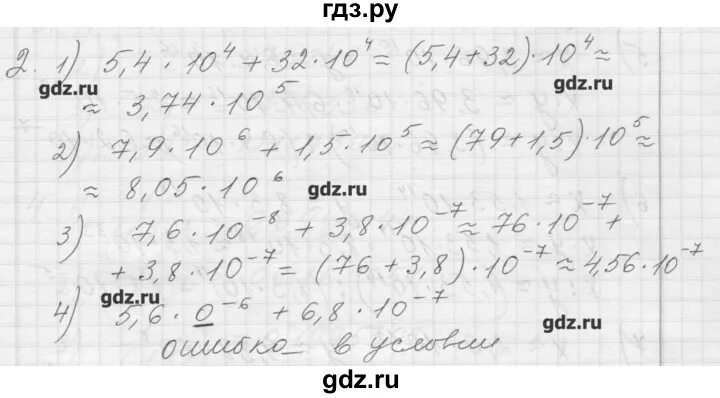 гдз.ру
2. 1) 5,4 · 10⁴ + 32 · 10⁴ ≈ (5,4 + 32) · 10⁴ ≈
gdz.ru gdz.ru
≈ 3,74 · 10⁵
2) 7,9 · 10⁶ + 1,5 · 10⁵ ≈ (79 + 1,5) · 10⁵ ≈
≈ 8,05 · 10⁶ gdz.ru
3) 7,6 · 10⁻⁸ + 3,8 · 10⁻⁷ ≈ 76 · 10⁻⁷ +
+ 3,8 · 10⁻⁷ = (76 + 3,8) · 10⁻⁷ ≈ 4,56 · 10⁻⁷
gdz.ru
4) 5,6 · 0⁻⁶ + 6,8 · 10⁻⁷
gdz.ru
ошибка в условии
gdz.ru